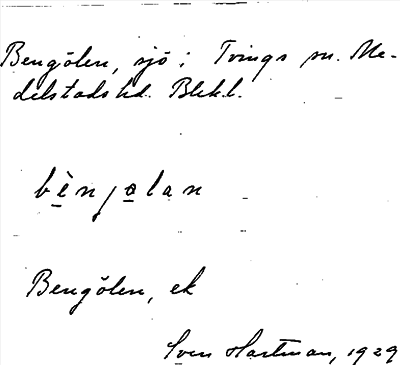 Bengölen, sjö i Tvings sn. Me-
delstads hd. Blek.l.
bènjølan
Bengölen, ek
Sven Hartman, 1929